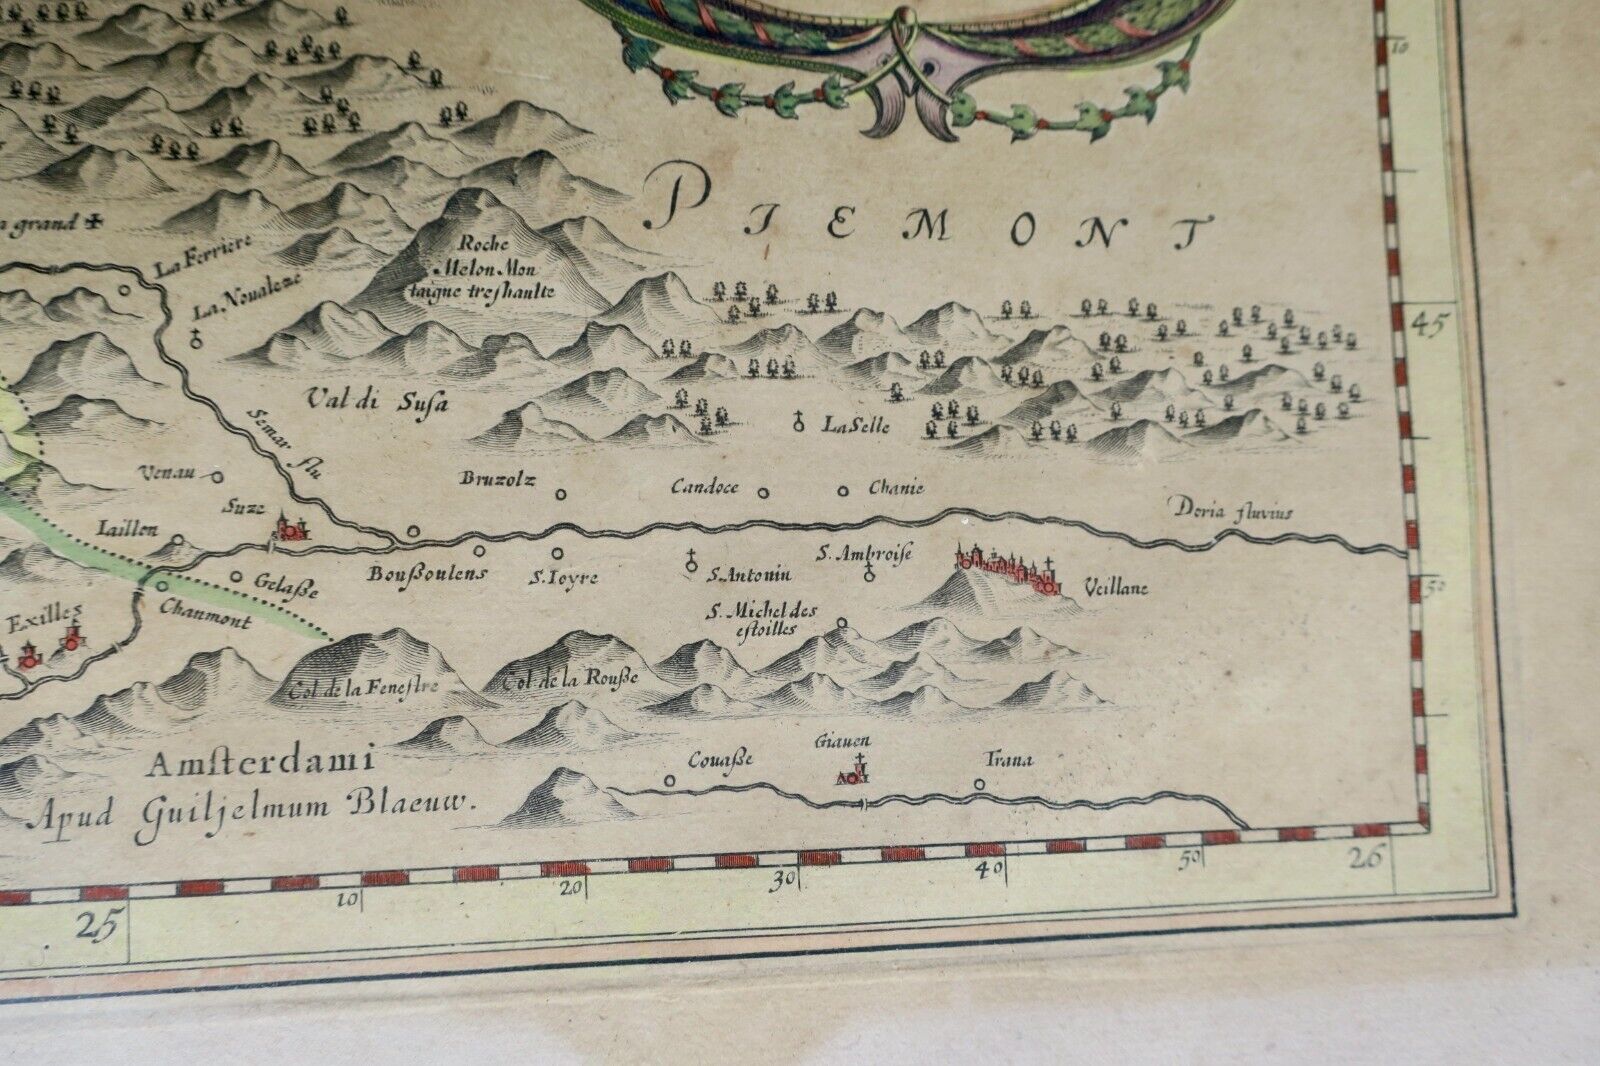 grand
PIEMONT
La Ferriere
La Noualeze
Roche
Melon Mon
taigne treſhaulte
10
45
Val di Suſa
Semar flu
La Selle
Venau
Suze
Bruzolz
Candoce
Chanie
Doria fluvius
Iaillon
Gelaße
Boußoulens
S. Ioyre
S. Antonin
S. Ambroiſe
Veillane
50
Exilles
Chanmont
S. Michel des
eſtoilles
Col de la Feneſtre
Col de la Rouße
Amſterdami
Apud Guiljelmum Blaeuw.
Couaße
Giauen
Trana
25
10
20
30
40
50
26